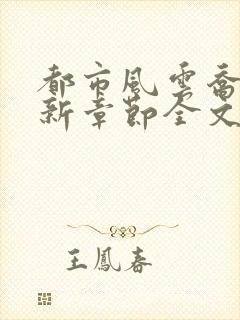 都市風雲喬
新章節全文
王鳳春